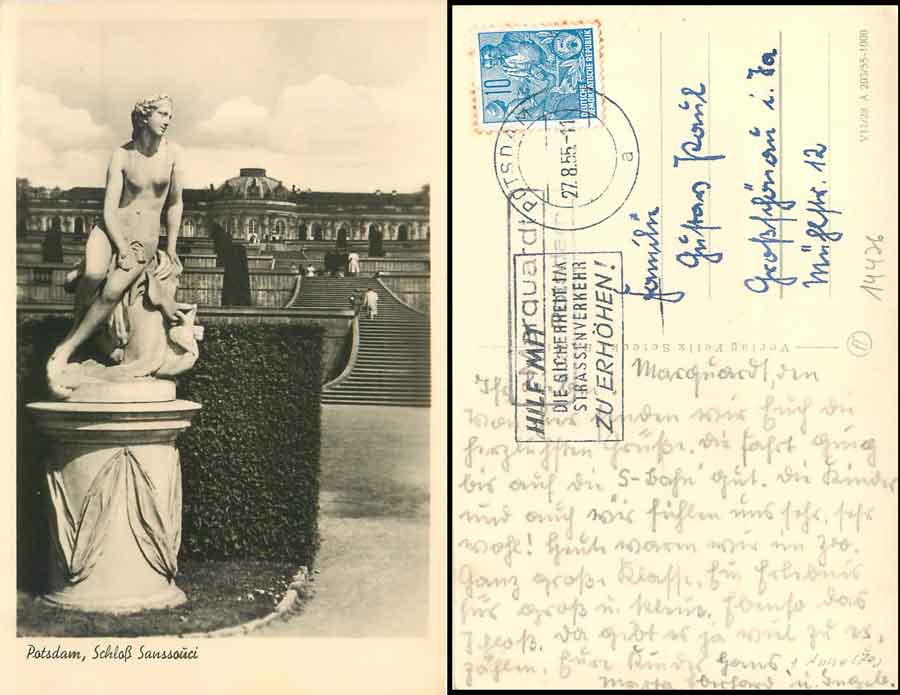 Potsdam, Schloß Sanssouci
10
5
DEUTSCHE
DEMOKRATISCHE REPUBLIK
POTSDAM
27.8.55-11
a
Marquardt
HILF MIT
DIE SICHERHEIT IM
STRASSENVERKEHR
ZU ERHÖHEN!
Familie
Gustav Paul
Großschönau i. Sa
Mühlstr. 12
V11/28 A 203/55-1000
14426
Verlag Felix Setecki
Marquardt, den
senden wir Euch die
herzlichsten Grüße. Die Fahrt ging
bis auf die S-Bahn gut. Die Kinder
und auch wir fühlen uns sehr, sehr
wohl! Heute waren wir im Zoo.
Ganz große Klasse. Ein Erlebnis
für groß u. klein. Ebenso das
Schloß. Da gibt es ja viel zu er,
zählen. Eure Kinder Hans,
Marta Eberhard u. Ingeb.